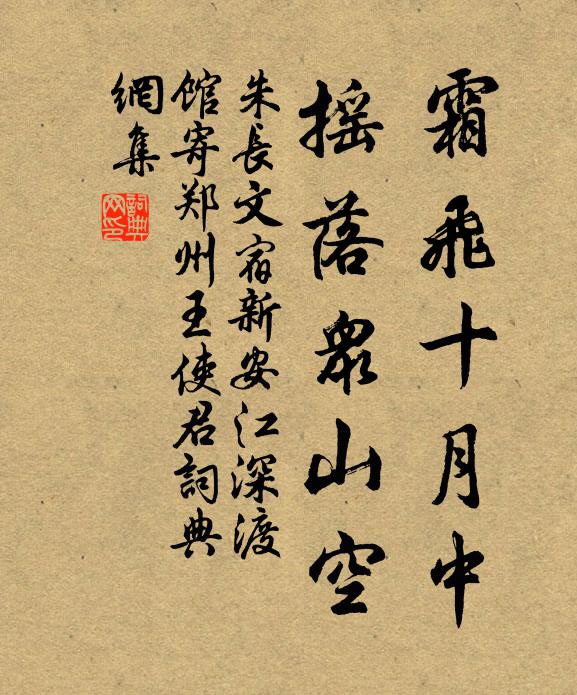 霜飛十月中
摇落衆山空
朱長文宿新安江深渡
館寄郑州王使君詞典
網集
詞典
网印